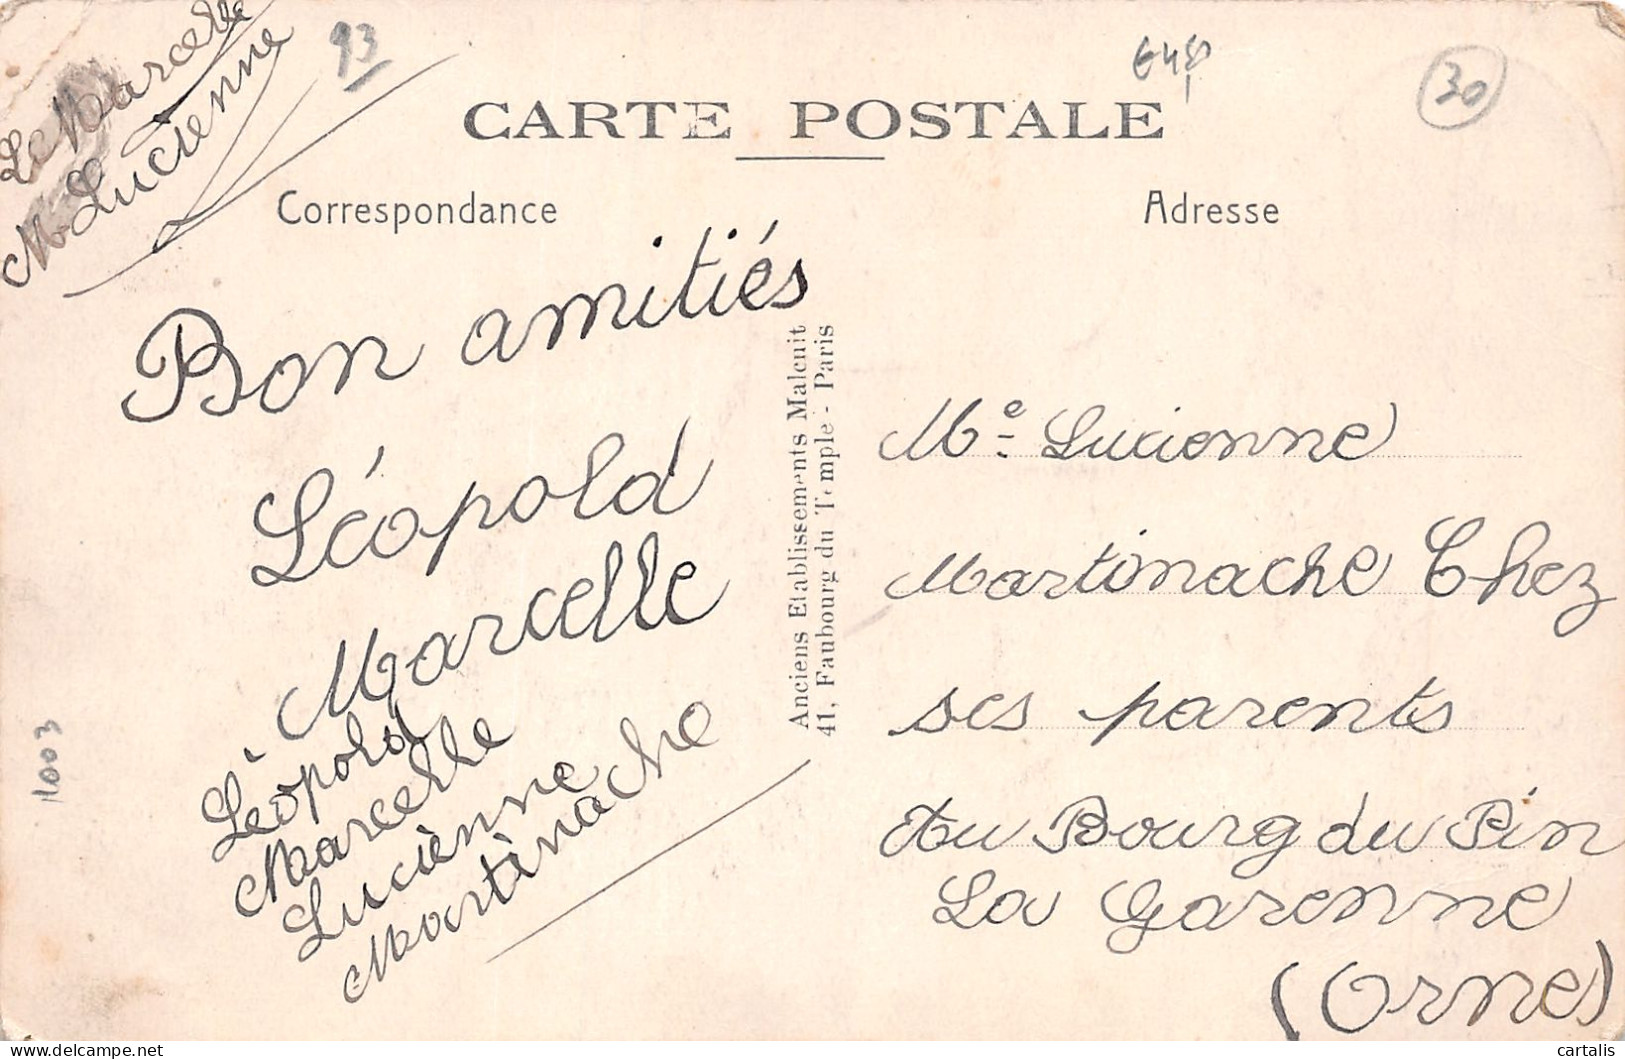 Le Marcelle
M. Lucienne
93
30
CARTE POSTALE
Correspondance
Adresse
Bon amitiés
Léopold
Marcelle
Léopold
Marcelle
Luciènne
Martinache
1003
Anciens Etablissements Malcuit
41, Faubourg du Temple - Paris
Me Lucienne
Martinache Chez
ses parents
Au Bourg du Pin
La Garenne
(Orne)
cartalis